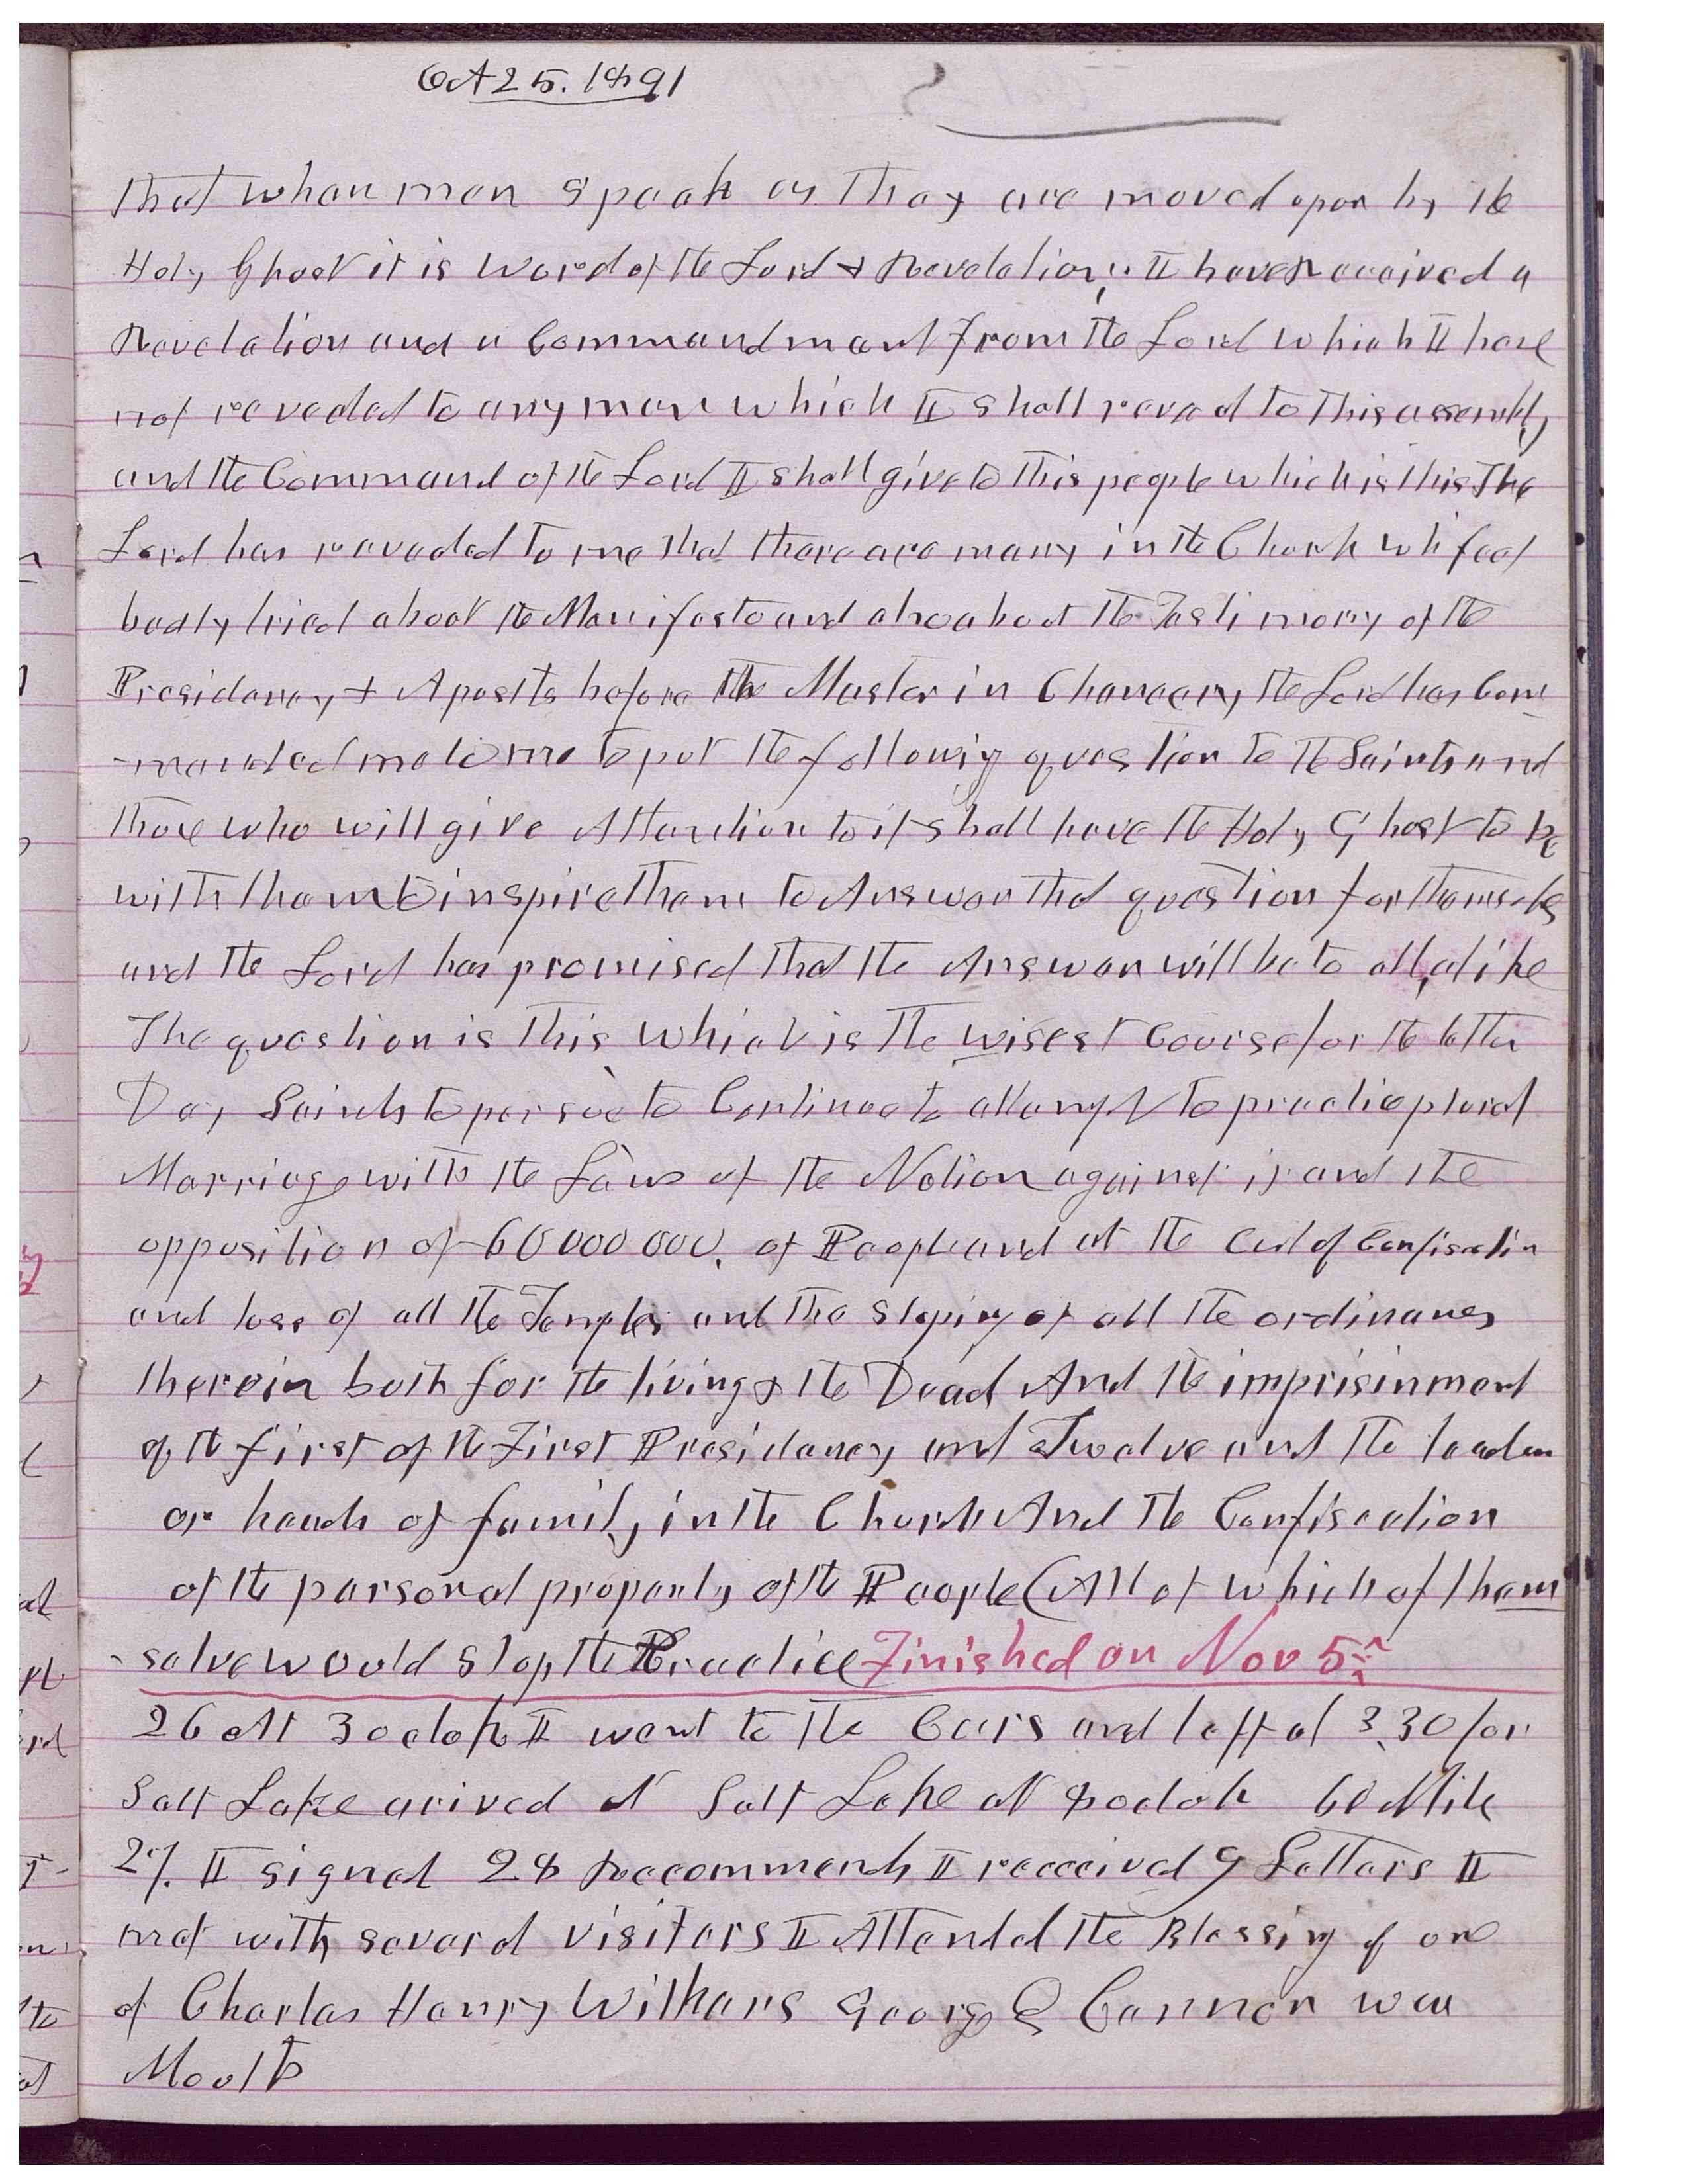 Oct 25. 1891
that when men speak as they are moved upon by the
Holy Ghost it is word of the Lord & Revelation, I have received a
Revelation and a Commandment from the Lord which I have
not revealed to any man which I shall reveal to this assembly
and the Command of the Lord I shall give to this people which is this The
Lord has revealed to me that there are many in the Church wh feel
badly tried about the Manifesto and also about the Testimony of the
Presidency & Apostls before the Master in Chancery, the Lord has Com
-manded me to me to put the following question to the Saints and
those who will give Attention to it shall have the Holy Ghost to be
with them to inspire them to Answer that question for themselves
and the Lord has promised that the Answer will be to all, alike
The question is this Which is the wisest Course for the Latter
Day Saints to persue to Continue to attempt to practice plural
Marriage with the Laws of the Nation against it and the
opposition of 60000000. of People and at the Cost of Confiscation
and loss of all the Temples and the stoping of all the ordinances
therein both for the living & the Dead And the imprisinment
of the first of the First Presidency and Twelve and the leaders
or heads of family in the Church And the Confiscation
of the personal property of the People (All of which of them
-selve would stop the Practice Finished on Nov 5
26 At 3 oclok I went to the Cars and left at 3.30 for
Salt Lake arived at Salt Lake at 8 oclok 60 Mile
27. I signed 28 Recommends I recceived 9 Letters I
met with several visitors I Attended the Blessing of one
of Charles Henry Wilkens George Q Cannon was
Mouth